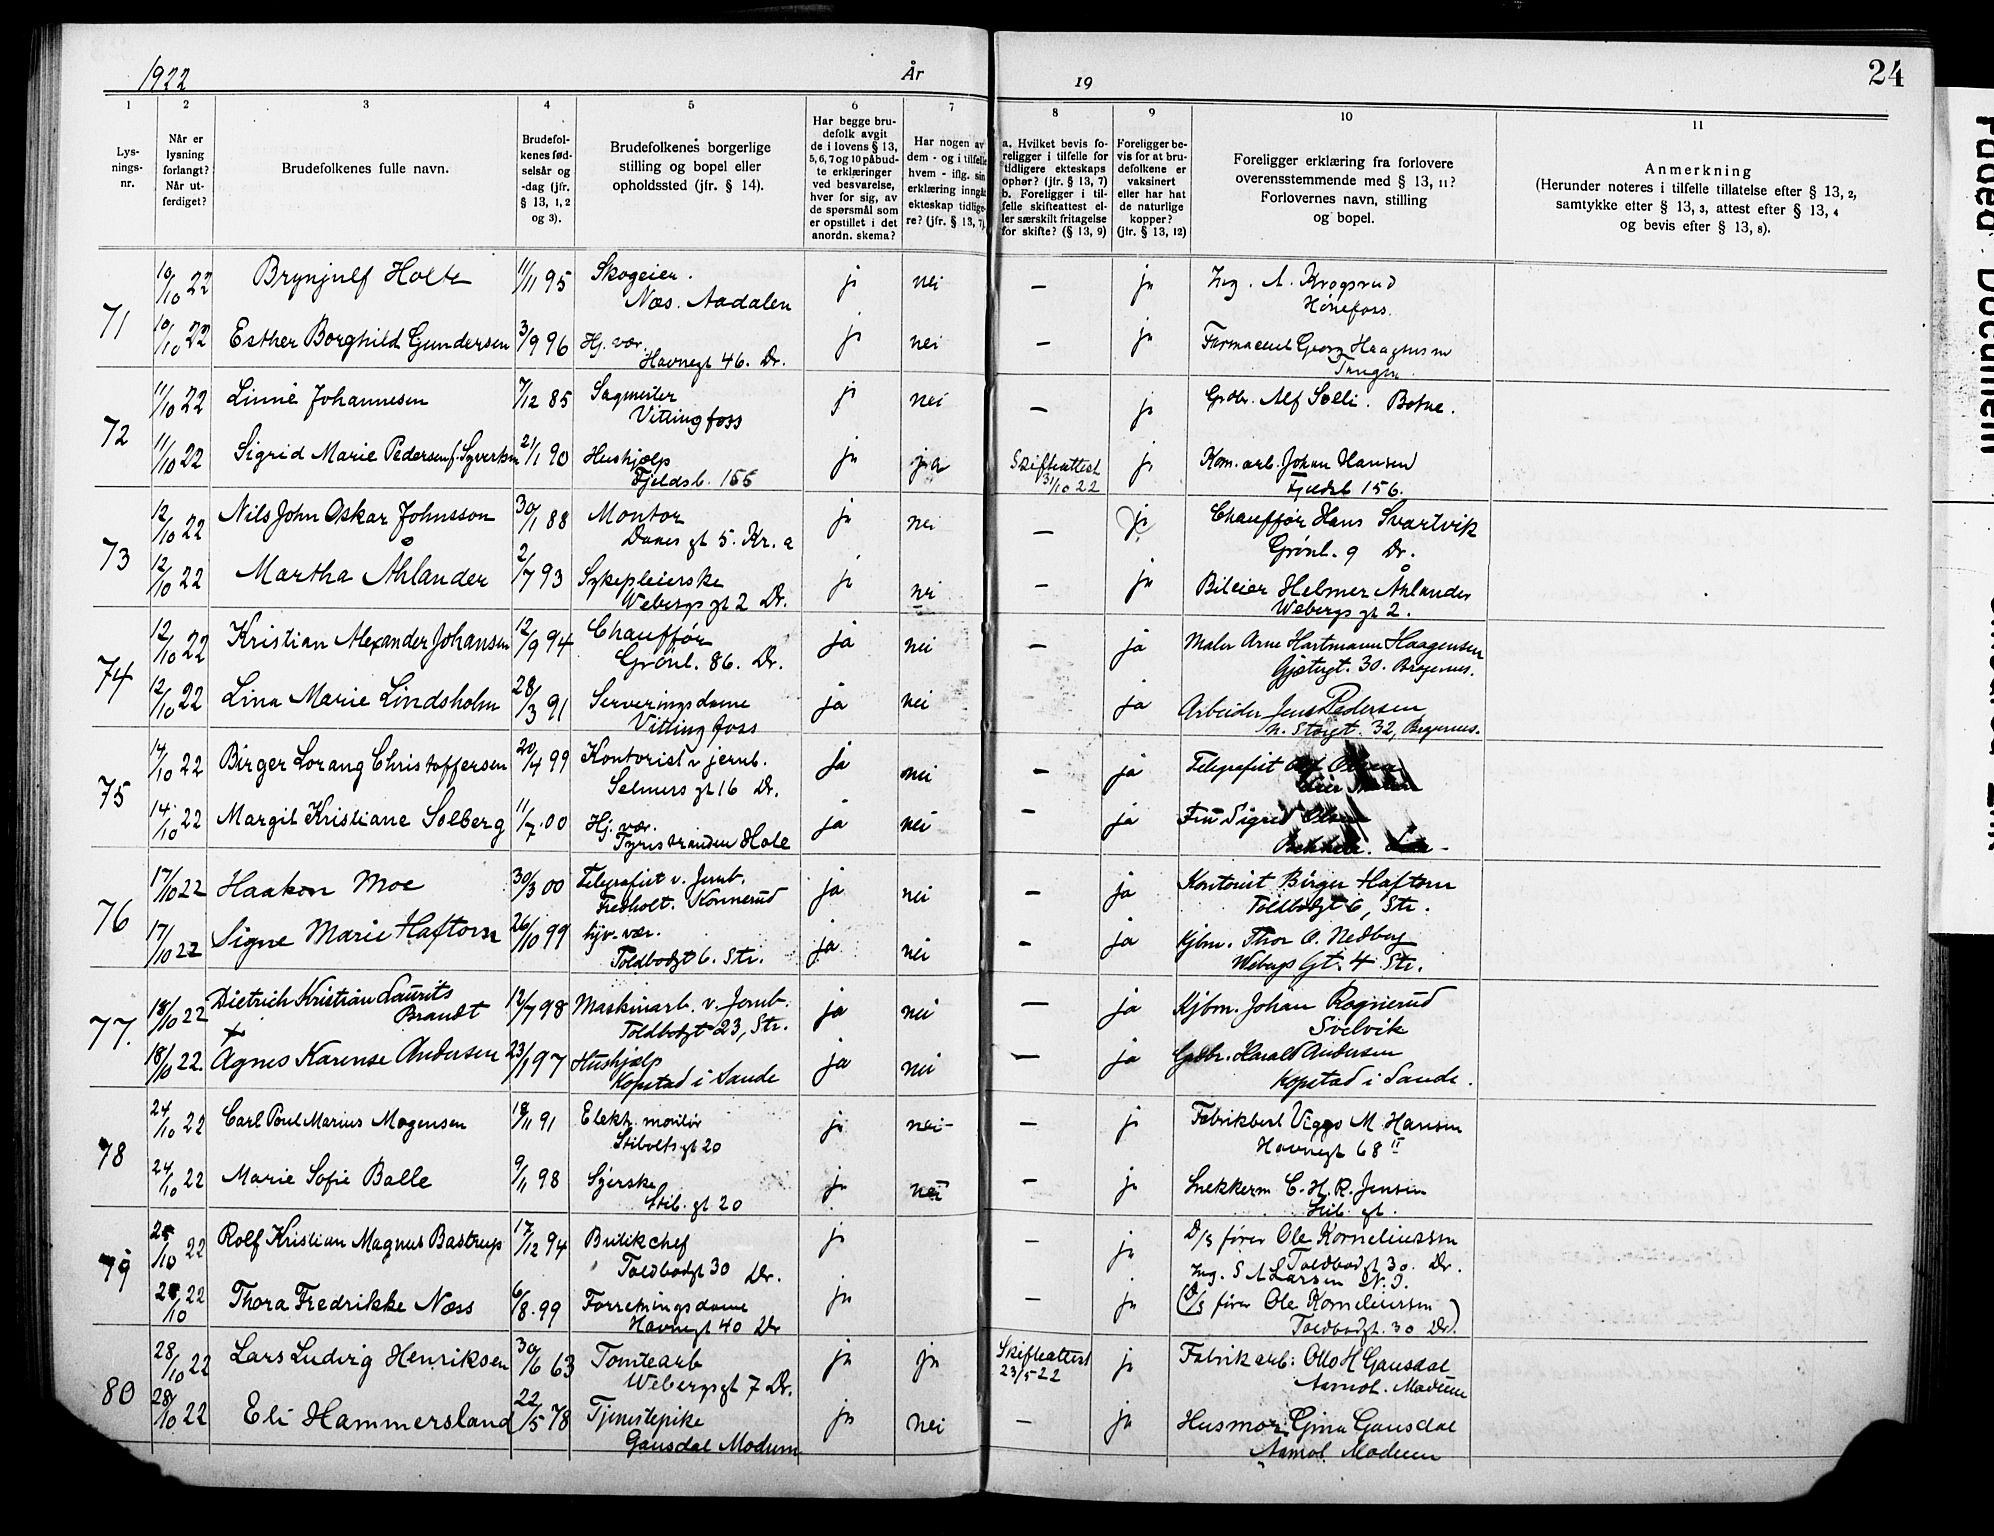 1922 År 19 24
1 2 3 4 5 6 7 8 9 10 11
Lys-
nings-
nr.
Når er
lysning
forlangt?
Når ut-
ferdiget?
Brudefolkenes fulle navn.
Brudefol-
kenes fød-
selsår og
-dag (jfr.
§ 13, 1, 2
og 3).
Brudefolkenes borgerlige
stilling og bopel eller
opholdssted (jfr. § 14).
Har begge bru-
defolk avgit
de i lovens § 13,
5, 6, 7 og 10 påbud-
te erklæringer
ved besvarelse,
hver for sig, av
de spørsmål som
er opstillet i det
anordn. skema?
Har nogen av
dem - og i tilfelle
hvem - iflg. sin
erklæring inngåt
ekteskap tidlige-
re? (jfr. § 13, 7)
a. Hvilket bevis fo-
religger i tilfelle for
tidligere ekteskaps
ophør? (jfr. § 13, 7)
b. Foreligger i til-
felle skifteattest el-
ler særskilt fritagelse
for skifte? (§ 13, 9)
Foreligger be-
vis for at bru-
defolkene er
vaksinert
eller har hat
de naturlige
kopper?
(jfr. § 13, 12)
Foreligger erklæring fra forlovere
overensstemmende med § 13, 11?
Forlovernes navn, stilling
og bopel.
Anmerkning
(Herunder noteres i tilfelle tillatelse efter § 13, 2,
samtykke efter § 13, 3, attest efter § 13, 4
og bevis efter § 13, 8).
71
10/10 22 Brynjulf Holte 11/11 95 Skogeier. ja nei — ja Ing. A. Krogsrud
Næs. Aadalen Hønefoss.
10/10 22 Esther Borghild Gundersen 3/9 96 Hj. vær. ja nei — ja Farmaceut Georg
Havnegt 46. Dr. Tangen
72
11/10 22 Linné Johannesen 7/12 85 Sagmester ja nei — ja Grdbr. Alf Solli. Botne.
Vittingfoss
11/10 22 Sigrid Marie Pedersen f. Syvertsen 21/1 90 Hushjælp ja ja Skifteattest ja Kom. arb. Johan Hansen
Fjeldsb. 156 31/10 22 Fjeldsb 156.
73
12/10 22 Nils John Oskar Johnsson 30/1 88 Montør ja nei — ja Chauffør Hans Svartvik
gt 5. Kr.a Grønl. 9 Dr.
12/10 22 Martha Åhlander 2/7 93 Sykepleierske ja nei — ja Bileier Helmer Åhlander
Webergs gt 2 Dr. Webergs gt 2.
74
12/10 22 Kristian Alexander Johansen 12/9 94 Chauffør ja nei — ja Maler Arne Hartmann Haagensen
Grønl. 86. Dr. Gjætergt. 30. Bragernes.
12/10 22 Lina Marie Lindsholm 28/3 91 Serveringsdame ja nei — ja Arbeider Jens Pedersen
Vittingfoss n. Storgt. 32, Bragernes.
75
14/10 22 Birger Lorang Christoffersen 20/4 99 Kontorist v jernb. ja nei — ja Telegrafist
Selmersgt 16 Dr.
14/10 22 Margit Kristiane Solberg 11/7 00 Hj. vær. ja nei — ja Fru Sigrid
Tyristranden Hole
76
17/10 22 Haakon Moe 30/3 00 Telegrafist v. Jernb. ja nei — ja Kontorist Birger Haftorn
Fredholt. Konnerud Toldbodgt 6, Str.
17/10 22 Signe Marie Haftorn 26/10 99 hjv. vær. ja nei — ja Kjbm. Thor O. Nedberg
Toldbodgt 6. Str. Webergs Gt. 4 Str.
77.
18/10 22 Dietrich Kristian Laurits 12/7 98 Maskinarb. v. Jernb. ja nei — ja Kjbm. Johan Rognerud
Brandt Toldbodgt 23, Str. Svelvik
18/10 22. Agnes Karense Andersen 23/1 97 Hushjælp ja nei — ja Grdbr. Harald Andersen
Kopstad i Sande Kopstad i Sande.
78
24/10 22 Carl Poul Marius Mogensen 18/11 91 Elektr. montør ja nei — ja Fabrikbest Viggo M. Hansen
Stiboltsgt 20 Havnegt 68 II
24/10 22 Marie Sofie Balle 9/11 98 Syerske ja nei — ja Snekkerm C. H. R. Jensen
Stib. gt 20 Stib. gt.
79
25/10 22 Rolf Kristian Magnus Bastrup 17/12 94 Butikchef ja — ja D/S fører Ole Korneliussen
Toldbodgt 30 Dr. Toldbodgt 30. Dr.
Ing. S A Larsen N. J.
25/10 22 Thora Fredrikke Næss 6/8 99 Forretningsdame ja — ja (D/S fører Ole Korneliussen
Havnegt 40 Dr Toldbodgt. 30 Dr).
80
28/10 22 Lars Ludvig Henriksen 30/6 63 Tomtearb ja ja Skifteattest ja Fabrikarb: Otto H Gausdal
Webergsgt 7 Dr. 23/5 22 Modum
28/10 22 Eli Hammersland 22/5 78 Tjenestepike ja nei — ja Husmor Gina Gausdal
Gausdal Modum Modum